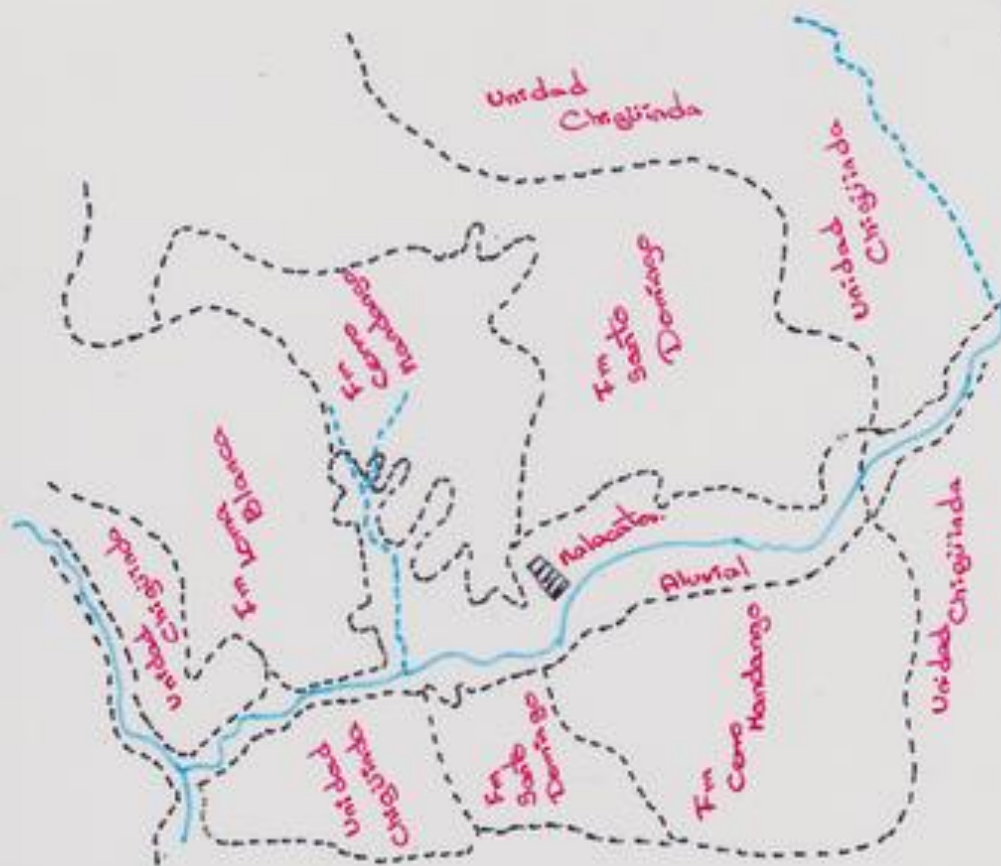 Unidad
Chigüinda
Unidad
Chigüinda
Fm
Cerro
Mandango
Fm
Santo
Domingo
Fm Loma
Blanca
Unidad
Chigüinda
Malacatos
Aluvial
Unidad Chigüinda
Unidad
Chigüinda
Fm
Santo
Domingo
Fm
Cerro
Mandango